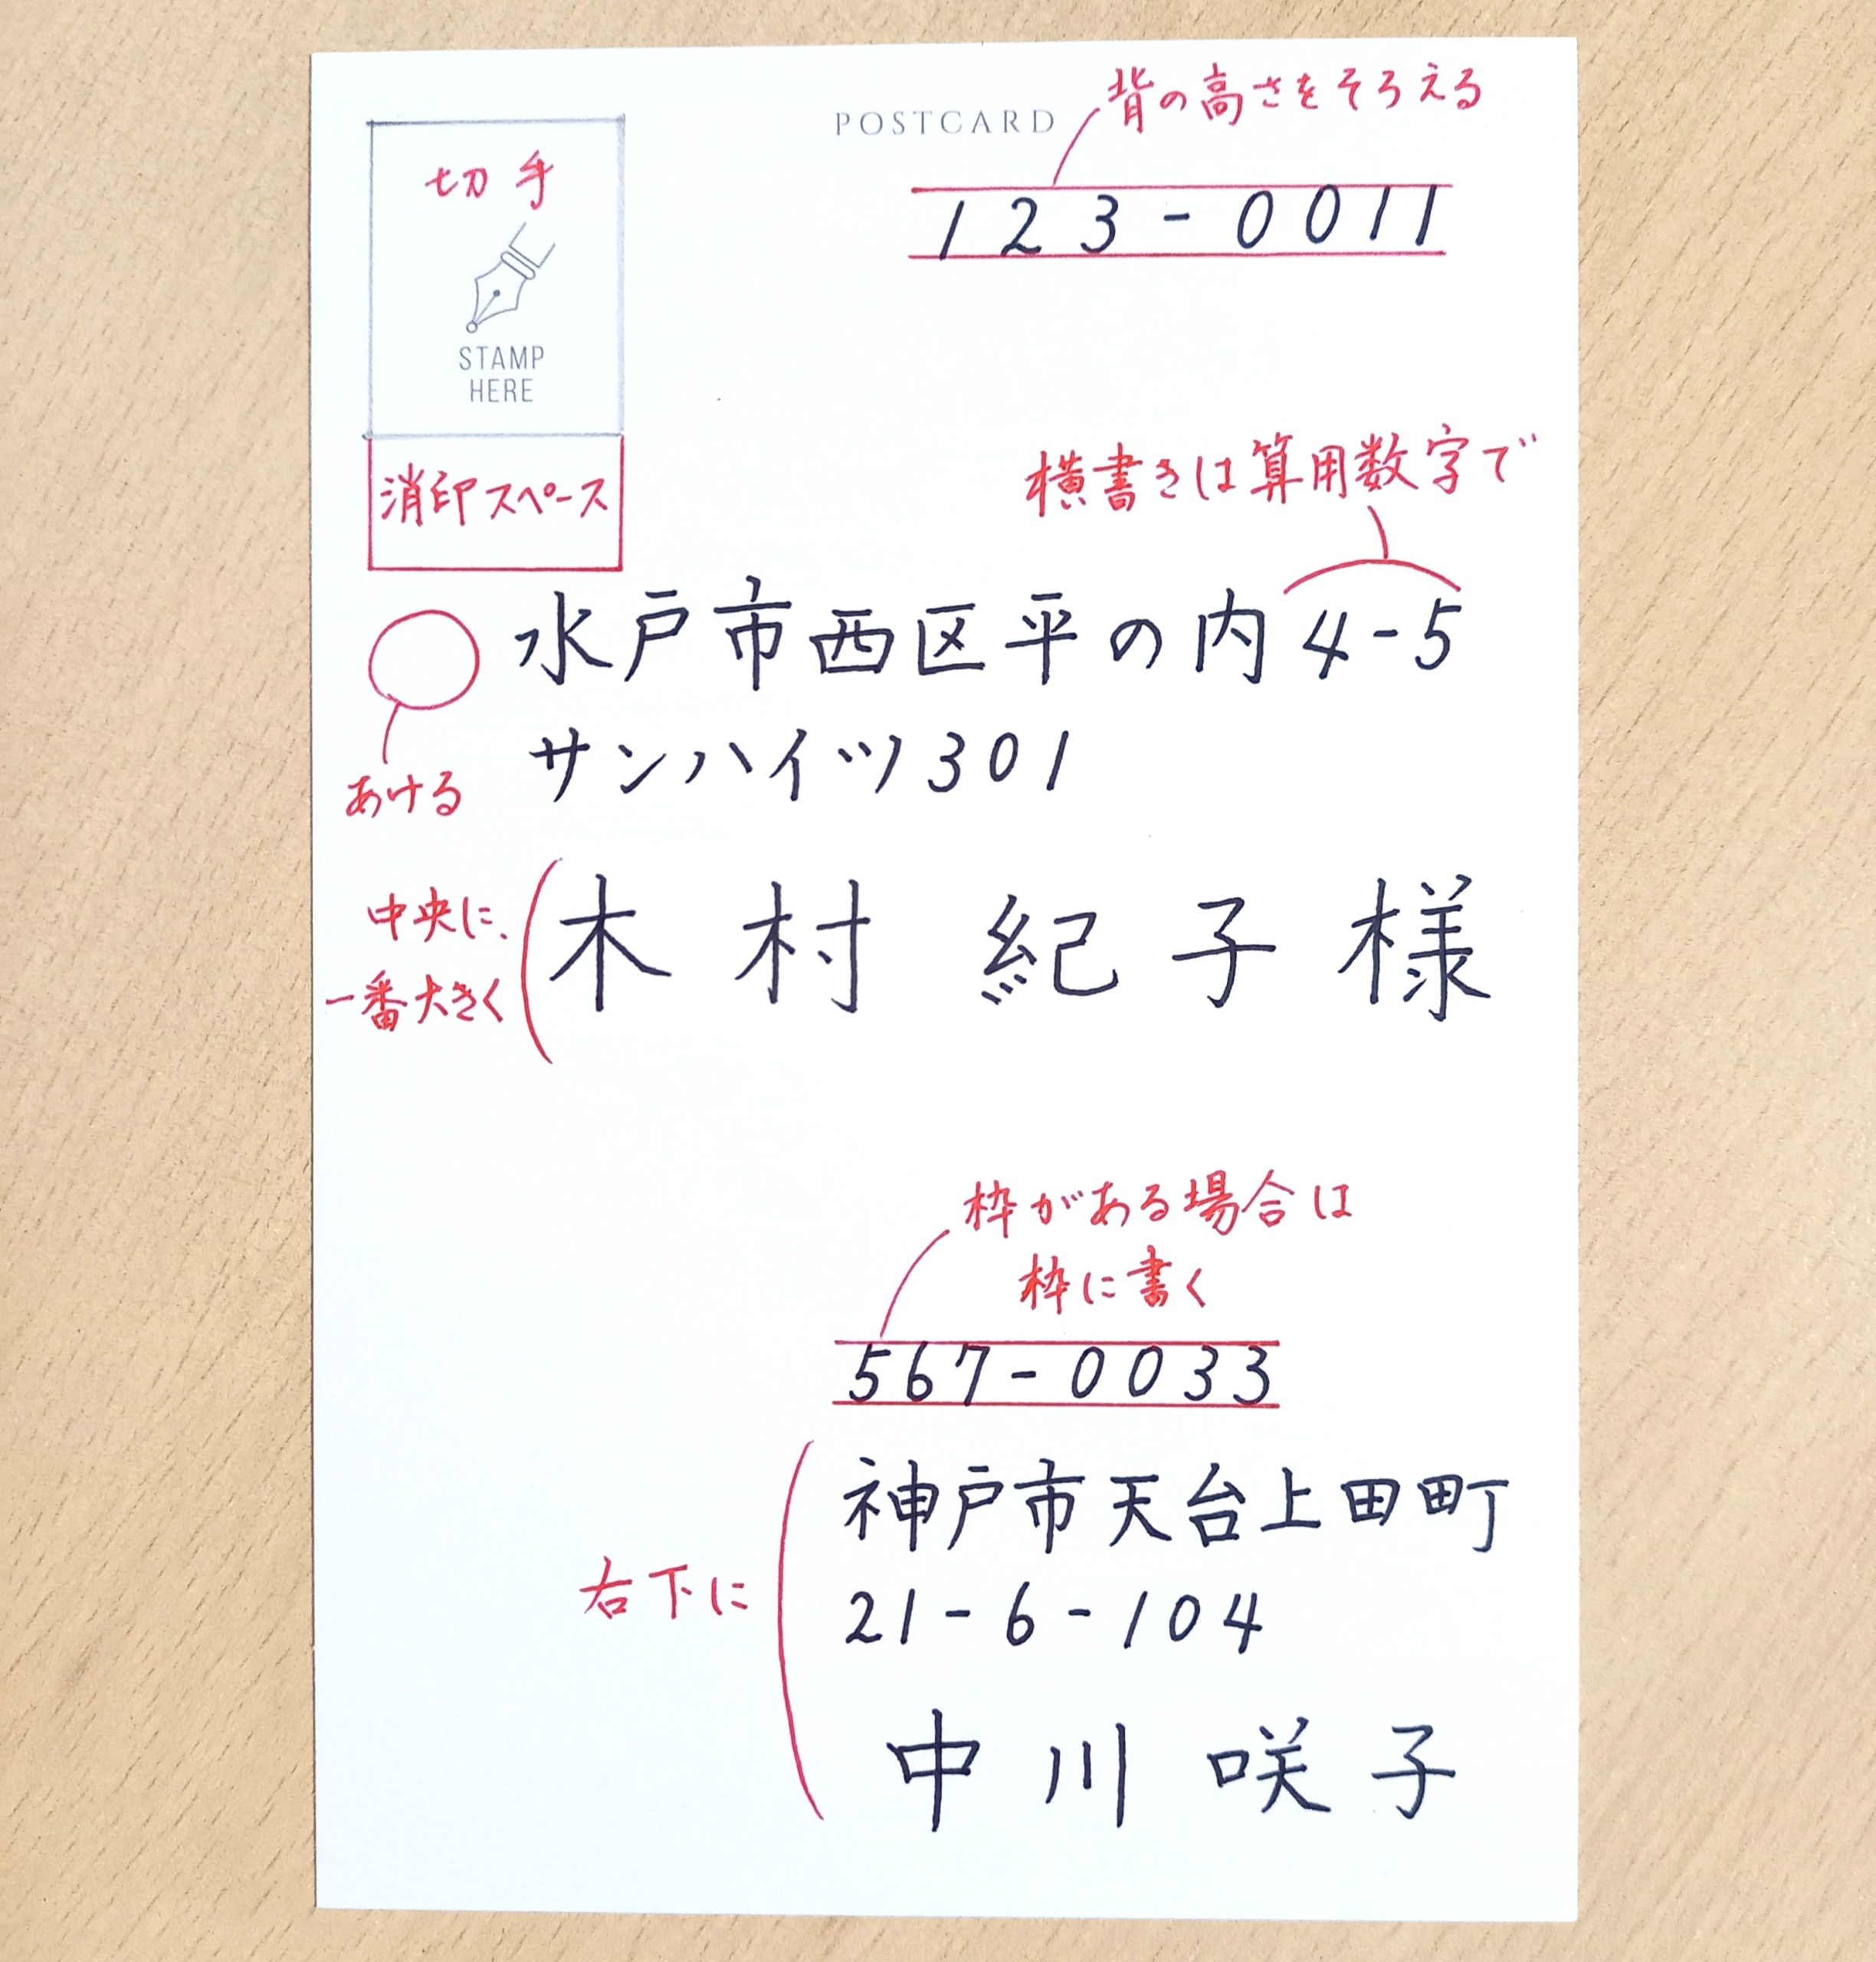 POSTCARD
背の高さをそろえる
123-0011
切手
STAMP
HERE
消印スペース
横書きは算用数字で
水戸市西区平の内4-5
サンハイツ301
あける
中央に、
一番大きく
木村 紀子様
枠がある場合は
枠に書く
567-0033
神戸市天台上田町
21-6-104
右下に
中川 咲子